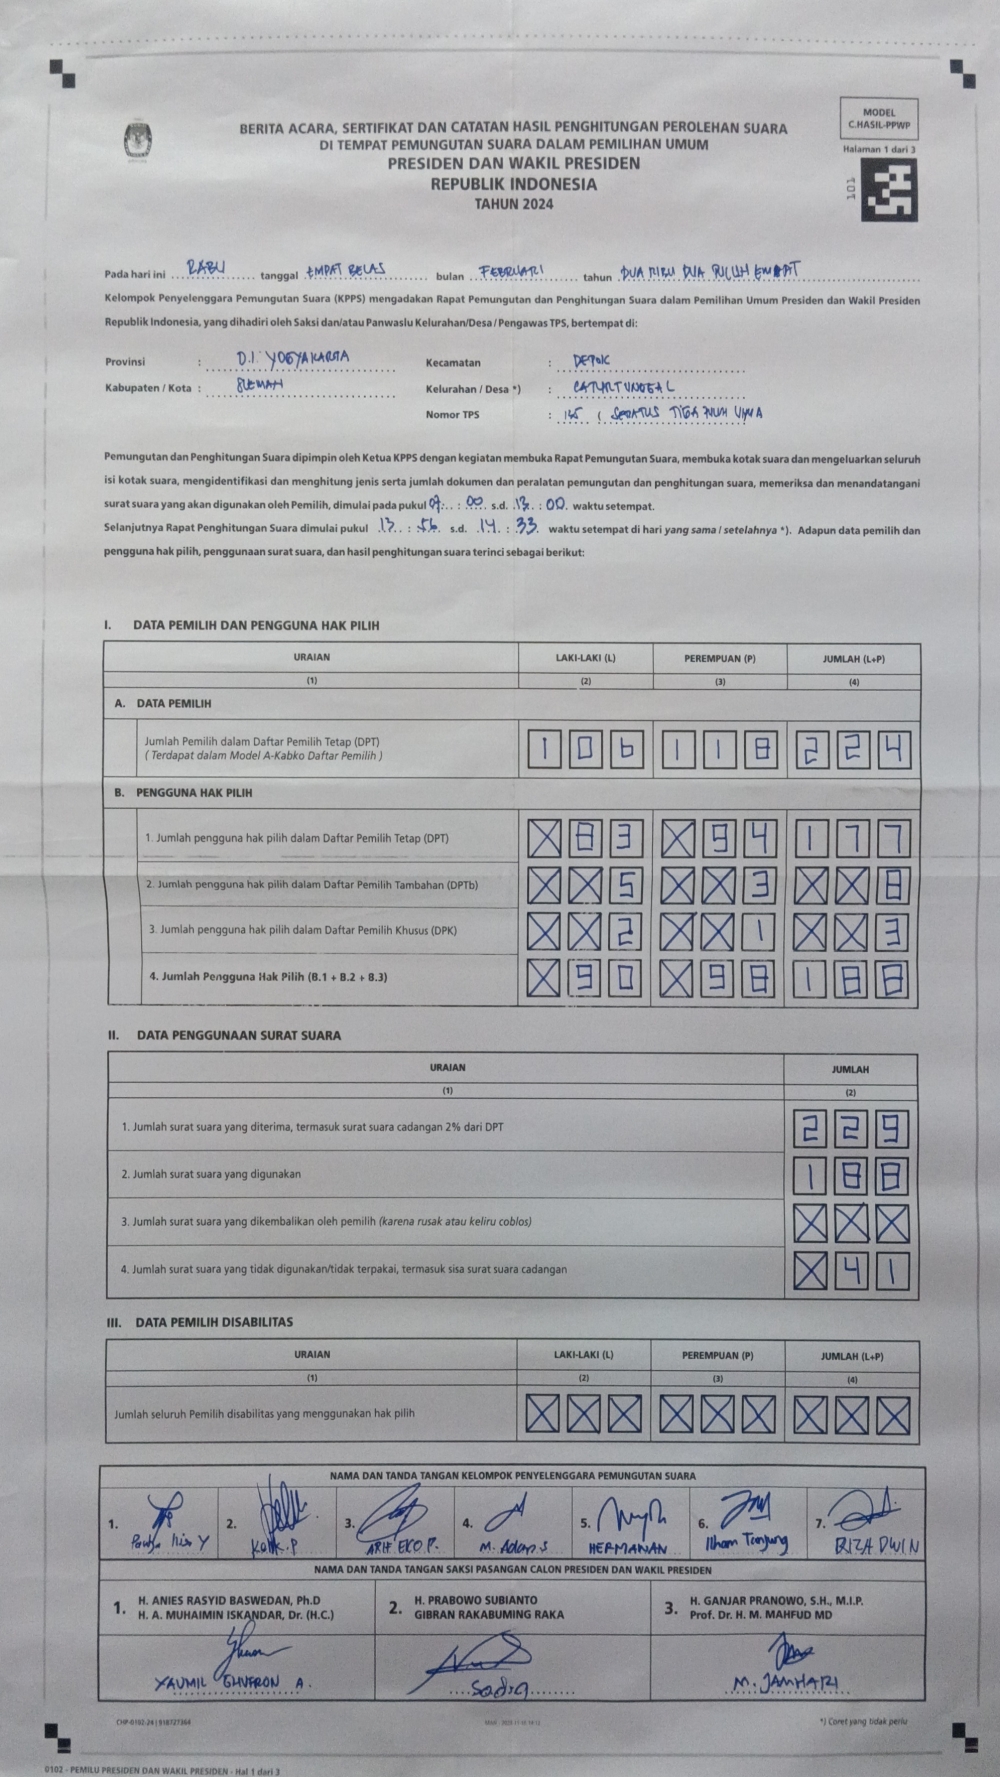 MODEL
C.HASIL-PPWP
Halaman 1 dari 3
101
BERITA ACARA, SERTIFIKAT DAN CATATAN HASIL PENGHITUNGAN PEROLEHAN SUARA
DI TEMPAT PEMUNGUTAN SUARA DALAM PEMILIHAN UMUM
PRESIDEN DAN WAKIL PRESIDEN
REPUBLIK INDONESIA
TAHUN 2024
Pada hari ini RABU tanggal EMPAT BELAS bulan FEBRUARI tahun DUA RIBU DUA PULUH EMPAT
Kelompok Penyelenggara Pemungutan Suara (KPPS) mengadakan Rapat Pemungutan dan Penghitungan Suara dalam Pemilihan Umum Presiden dan Wakil Presiden
Republik Indonesia, yang dihadiri oleh Saksi dan/atau Panwaslu Kelurahan/Desa / Pengawas TPS, bertempat di:
Provinsi : D.I. YOGYAKARTA Kecamatan : DEPOK
Kabupaten / Kota : SLEMAN Kelurahan / Desa *) : CATURTUNGGAL
Nomor TPS : 135 ( SERATUS TIGA PULUH LIMA
Pemungutan dan Penghitungan Suara dipimpin oleh Ketua KPPS dengan kegiatan membuka Rapat Pemungutan Suara, membuka kotak suara dan mengeluarkan seluruh
isi kotak suara, mengidentifikasi dan menghitung jenis serta jumlah dokumen dan peralatan pemungutan dan penghitungan suara, memeriksa dan menandatangani
surat suara yang akan digunakan oleh Pemilih, dimulai pada pukul 07 : 00 s.d. 13 : 00 waktu setempat.
Selanjutnya Rapat Penghitungan Suara dimulai pukul 13 : 56 s.d. 14 : 33 waktu setempat di hari yang sama / setelahnya *). Adapun data pemilih dan
pengguna hak pilih, penggunaan surat suara, dan hasil penghitungan suara terinci sebagai berikut:
I. DATA PEMILIH DAN PENGGUNA HAK PILIH
URAIAN LAKI-LAKI (L) PEREMPUAN (P) JUMLAH (L+P)
(1) (2) (3) (4)
A. DATA PEMILIH
Jumlah Pemilih dalam Daftar Pemilih Tetap (DPT) 1 0 6 1 1 8 2 2 4
( Terdapat dalam Model A-Kabko Daftar Pemilih )
B. PENGGUNA HAK PILIH
1. Jumlah pengguna hak pilih dalam Daftar Pemilih Tetap (DPT) X 8 3 X 9 4 1 7 7
2. Jumlah pengguna hak pilih dalam Daftar Pemilih Tambahan (DPTb) X X 5 X X 3 X X 8
3. Jumlah pengguna hak pilih dalam Daftar Pemilih Khusus (DPK) X X 2 X X 1 X X 3
4. Jumlah Pengguna Hak Pilih (B.1 + B.2 + B.3) X 9 0 X 9 8 1 8 8
II. DATA PENGGUNAAN SURAT SUARA
URAIAN JUMLAH
(1) (2)
1. Jumlah surat suara yang diterima, termasuk surat suara cadangan 2% dari DPT 2 2 9
2. Jumlah surat suara yang digunakan 1 8 8
3. Jumlah surat suara yang dikembalikan oleh pemilih (karena rusak atau keliru coblos) X X X
4. Jumlah surat suara yang tidak digunakan/tidak terpakai, termasuk sisa surat suara cadangan X 4 1
III. DATA PEMILIH DISABILITAS
URAIAN LAKI-LAKI (L) PEREMPUAN (P) JUMLAH (L+P)
(1) (2) (3) (4)
Jumlah seluruh Pemilih disabilitas yang menggunakan hak pilih X X X X X X X X X
NAMA DAN TANDA TANGAN KELOMPOK PENYELENGGARA PEMUNGUTAN SUARA
1. 2. 3. 4. 5. 6. 7.
ARIF EKO P. M. Adam S HERMAWAN Ilham Tanjung RIZA DWI N
NAMA DAN TANDA TANGAN SAKSI PASANGAN CALON PRESIDEN DAN WAKIL PRESIDEN
1. H. ANIES RASYID BASWEDAN, Ph.D
H. A. MUHAIMIN ISKANDAR, Dr. (H.C.)
2. H. PRABOWO SUBIANTO
GIBRAN RAKABUMING RAKA
3. H. GANJAR PRANOWO, S.H., M.I.P.
Prof. Dr. H. M. MAHFUD MD
XAUMIL GHUFRON A. Sadia M. JAMHARI
CHP-0102-24 | 918727364
*) Coret yang tidak perlu
0102 - PEMILU PRESIDEN DAN WAKIL PRESIDEN - Hal 1 dari 3